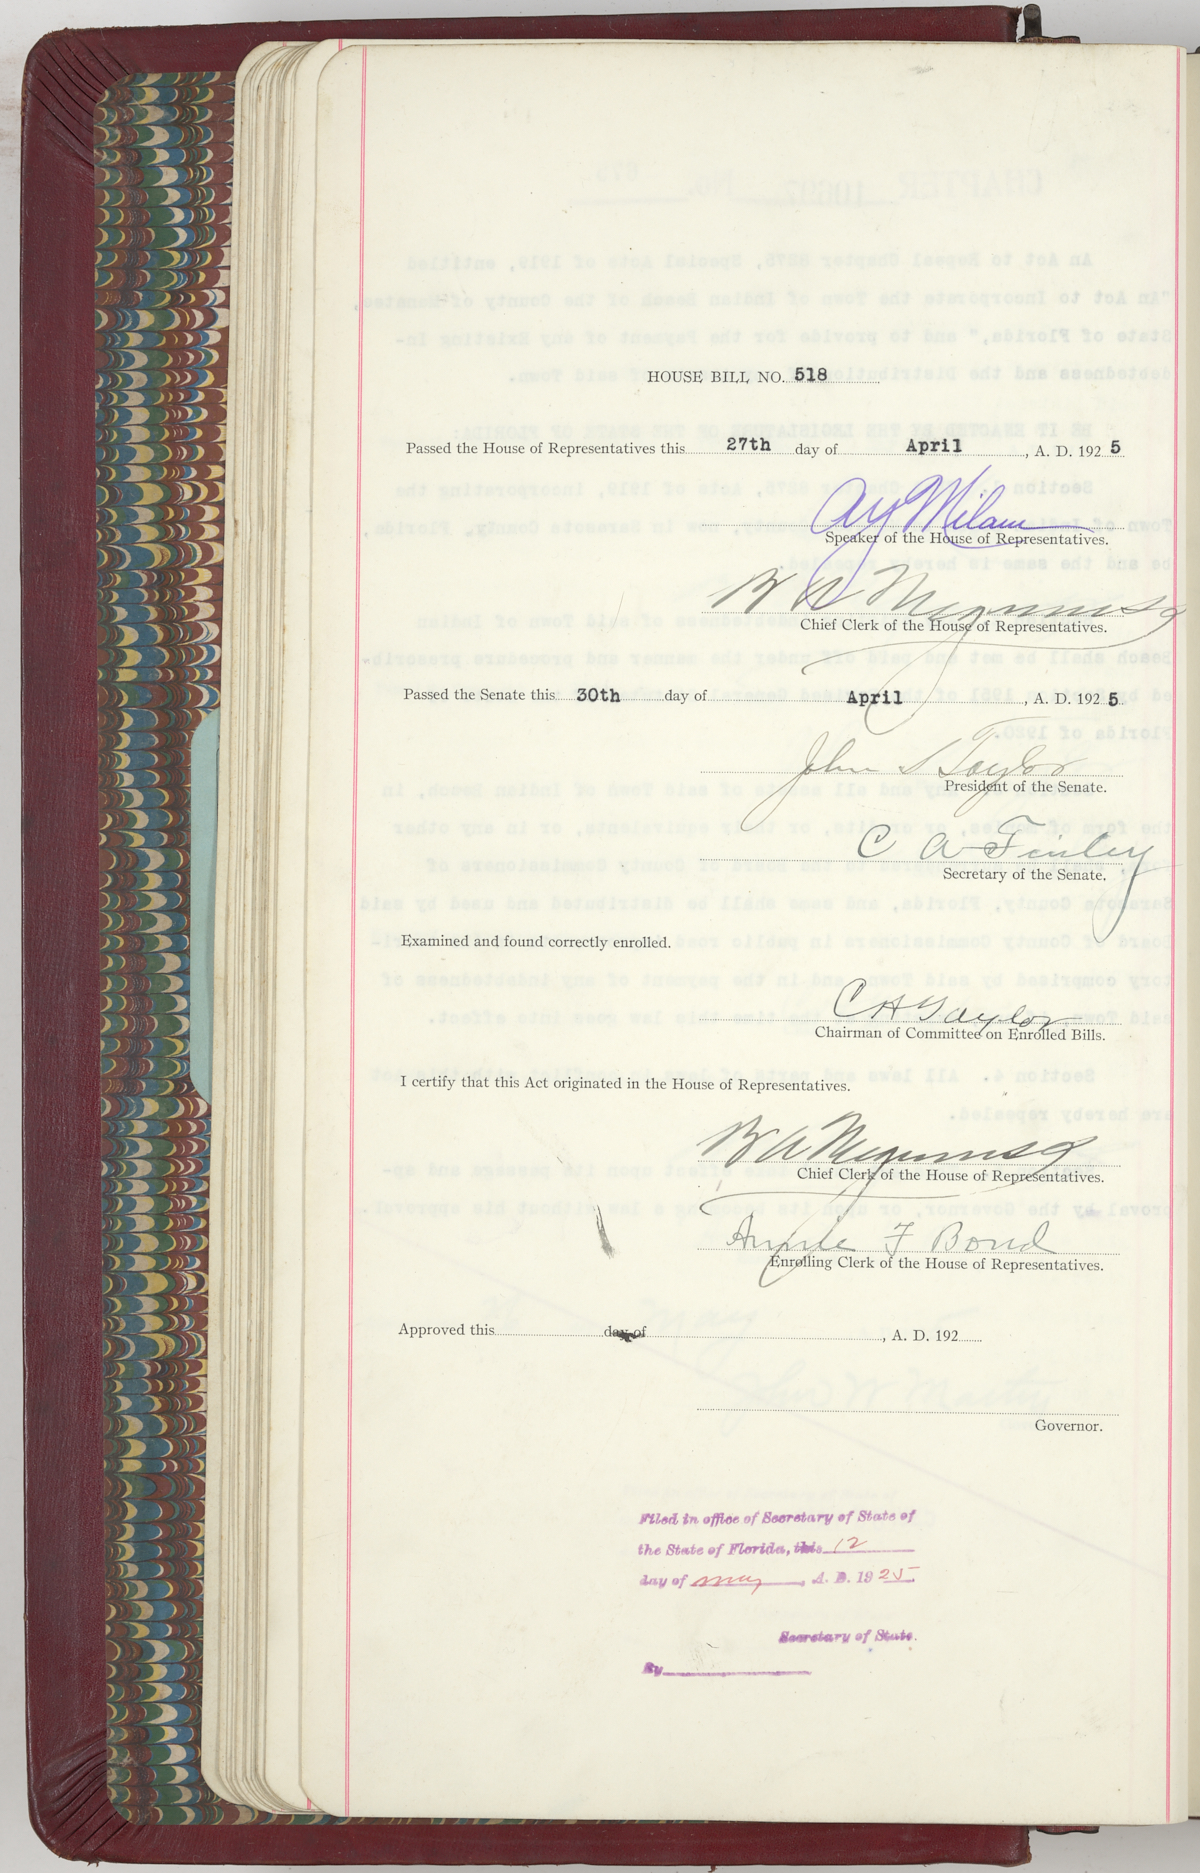 HOUSE BILL NO. 518
Passed the House of Representatives this 27th day of April, A. D. 1925
A Y Milam
Speaker of the House of Representatives.
B A
Chief Clerk of the House of Representatives.
Passed the Senate this 30th day of April, A. D. 1925
John S Taylor
President of the Senate.
C A Finley
Secretary of the Senate.
Examined and found correctly enrolled.
C H Taylor
Chairman of Committee on Enrolled Bills.
I certify that this Act originated in the House of Representatives.
B A
Chief Clerk of the House of Representatives.
Annie F Bond
Enrolling Clerk of the House of Representatives.
Approved this day of , A. D. 192
Governor.
Filed in office of Secretary of State of
the State of Florida, this 12
day of may, A. D. 1925
Secretary of State.
By